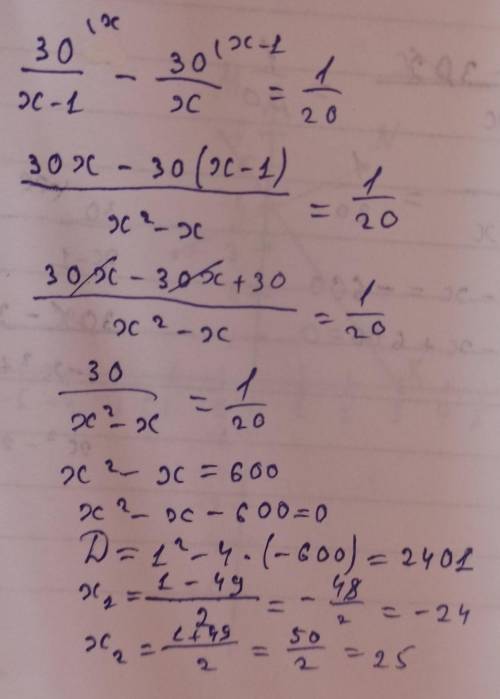 30^(x / x-1 - 30^(x-1 / x = 1/20
30x - 30(x-1) / x² - x = 1/20
30x - 30x + 30 / x² - x = 1/20
30 / x² - x = 1/20
x² - x = 600
x² - x - 600 = 0
D = 1² - 4 · (-600) = 2401
x₂ = 1 - 49 / 2 = - 48 / 2 = -24
x₂ = 1 + 49 / 2 = 50 / 2 = 25